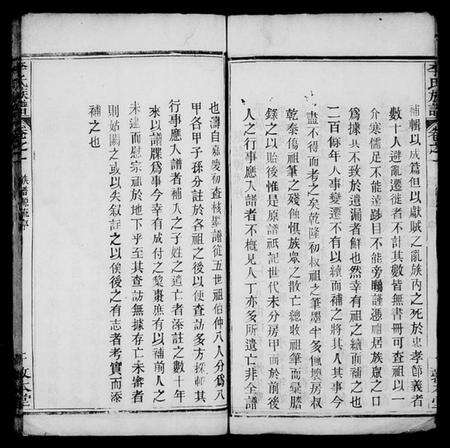 補輯以成篇但以獻賊之亂族內之死於忠孝節義者
數十人避亂遷徙者不計其數皆無書冊可查祖以一
介寒儒足不能達跡目不能旁矚謹憑禰居族眾之口
為據其不致於遺漏者鮮也然幸有祖之續而補之也
二百餘年人事變遷不有以續而補之將其人其事今
盡不得而考之矣乾隆初叔祖之筆墨半多傾壞房叔
乾泰傷祖筆之殘蝕恨族眾之散亡總收祖筆而彙謄
錄之以貽後惟是原譜祇記世代未分房甲而於前後
人之行事應入譜者不概見人丁亦多所遺亡非全譜
也濤自嘉慶初查核舊譜從五世祖伯仲八人分爲八
甲各甲子孫分註於各祖之後以便查訪多方採輯其
行事應入譜者補入之子姓之遺亡者添註之數十年
來以譜牒爲事今幸有成付之梨棗庶有以補前人之
未逮而慰宗祖於地下乎至其查訪無據存亡未審者
則姑闕之或以失叙註之以俟後之有志者考實而添
補之也
李氏族譜
卷之一
敦本堂